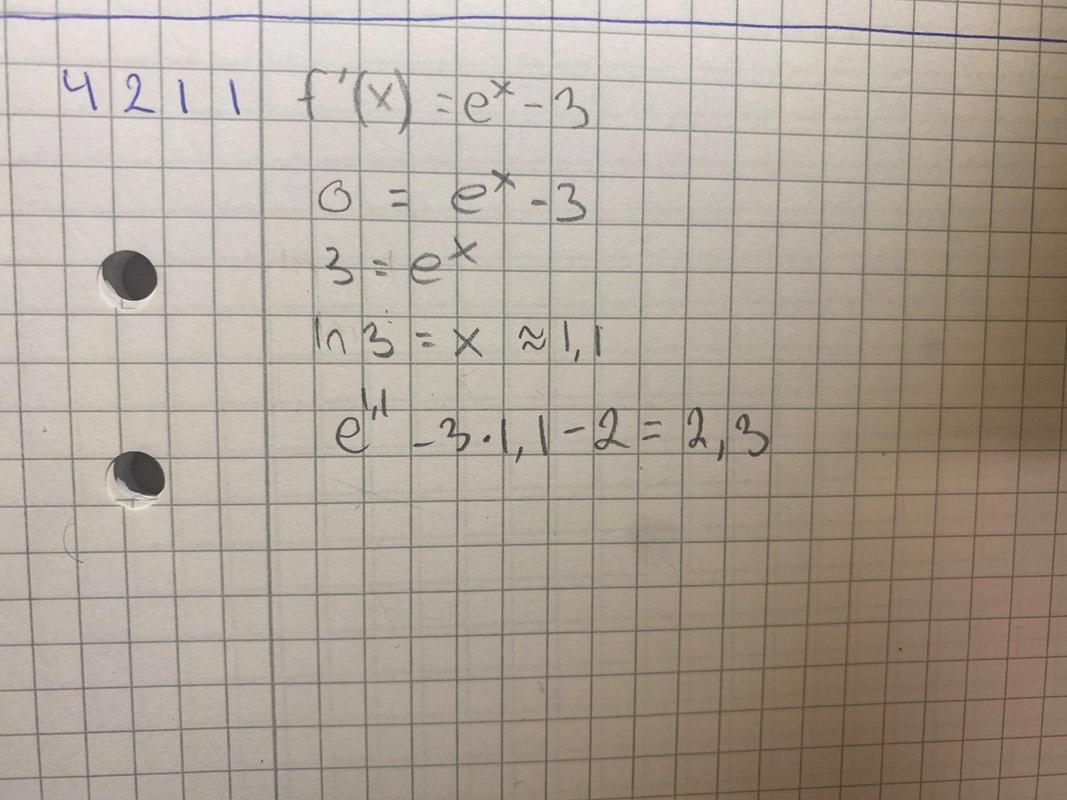 4211 f'(x) = e^x - 3
0 = e^x - 3
3 = e^x
ln 3 = x ≈ 1,1
e^1,1 - 3·1,1 - 2 = 2,3